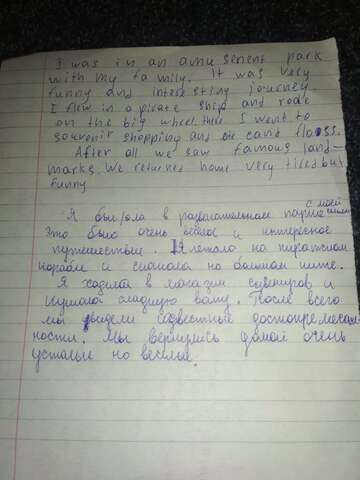 I was in an amusement park
with my family. It was very
funny and interesting journey
I flew in a pirate ship and rode
on the big wheel. there I went to
souvenir shopping and ate cand floss.
After all we saw famous land-
marks. We returned home very tired but
funny
Я был/ола в развлекательном парке с моей семьёй
Это было очень весёлое и интересное
путешествие. Я летала на пиратском
корабле и на большом
Я ходила в магазин сувениров и
кушала сладкую вату. После всего
мы увидели известные достопремечал-
ности. Мы вернулись домой очень
усталые но весёлые.